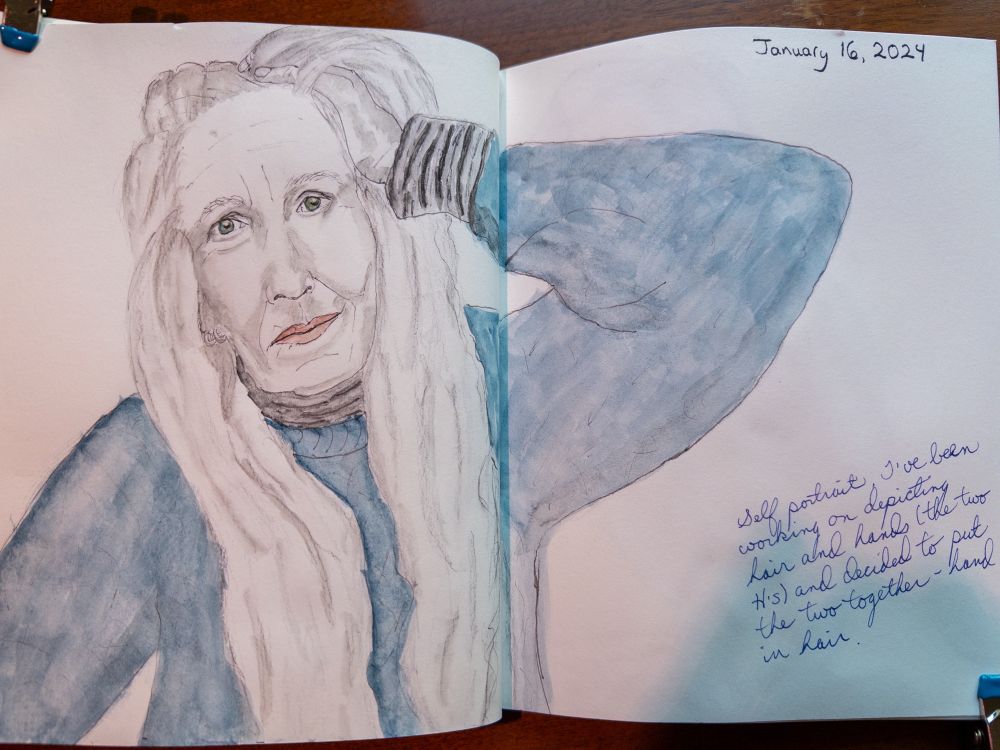 January 16, 2024
Self portrait, I've been
working on depicting
hair and hands (the two
H's) and decided to put
the two together - hand
in hair.